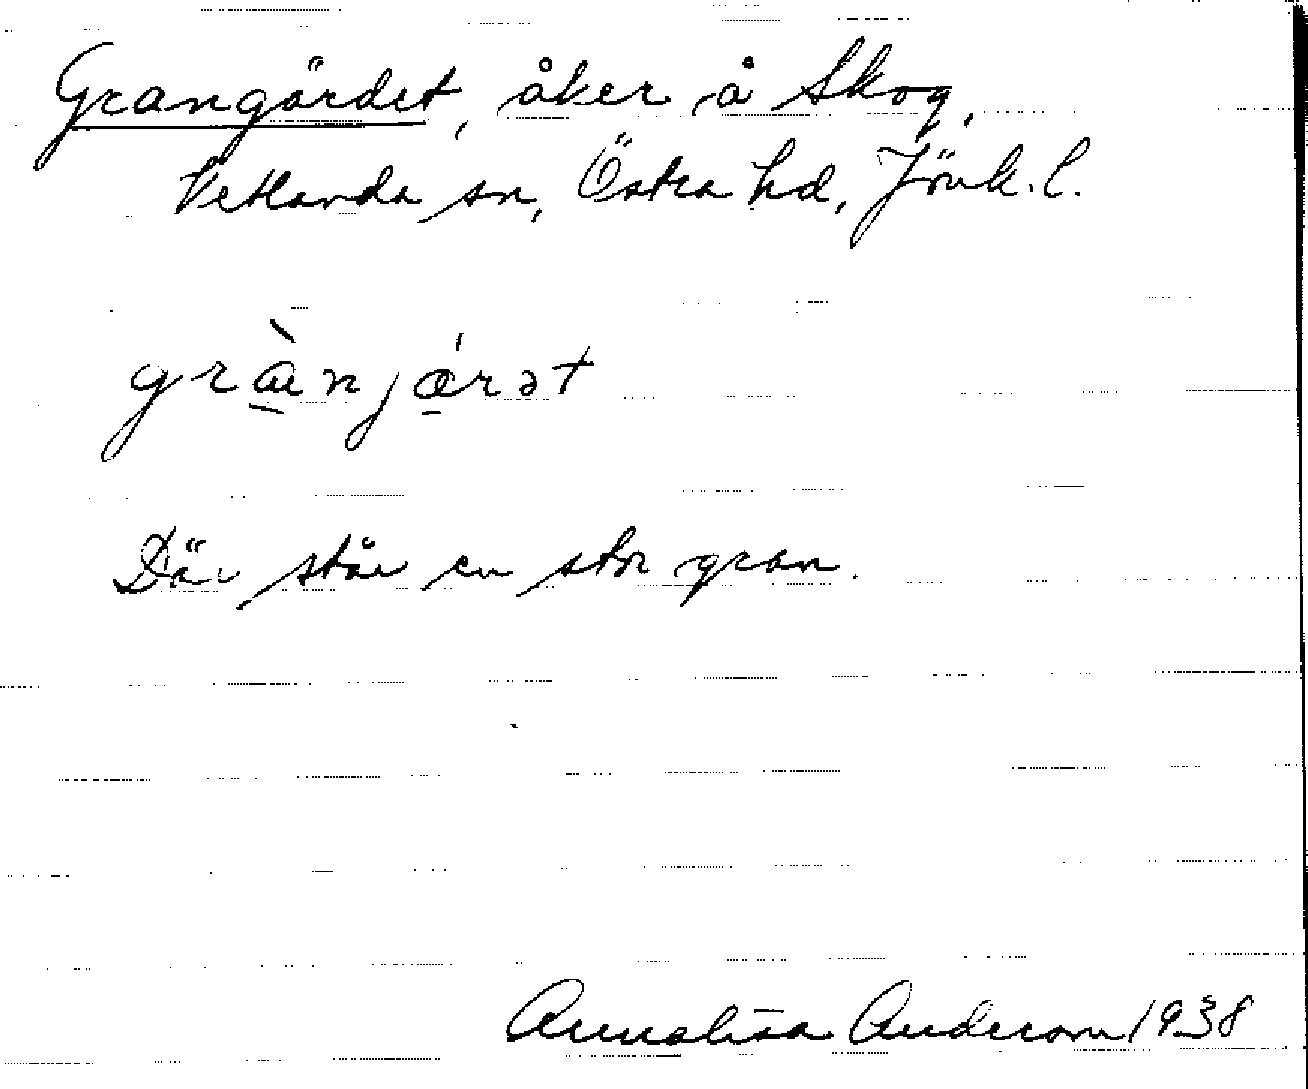 Grangärdet, åker å Skog,
Vetlanda sn, Östra hd, Jönk. l.
grànjǽrət
Där står en stor gran.
Annalisa Anderson 1938